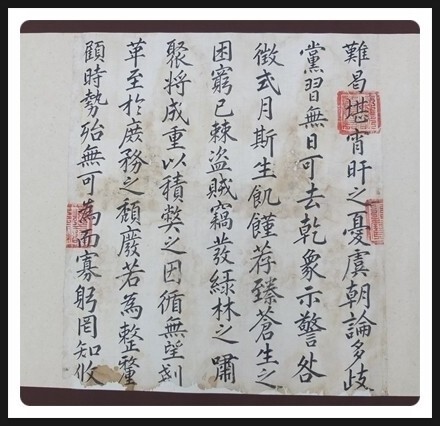 難曷堪宵旰之憂虞朝論多歧
黨習無日可去乾象示警咎
徵式月斯生飢饉荐臻蒼生之
困窮已棘盜賊竊發綠林之嘯
聚將成重以積弊之因循無望剗
革至於庶務之頹廢若為整釐
顧時勢殆無可為而寡躬罔知攸